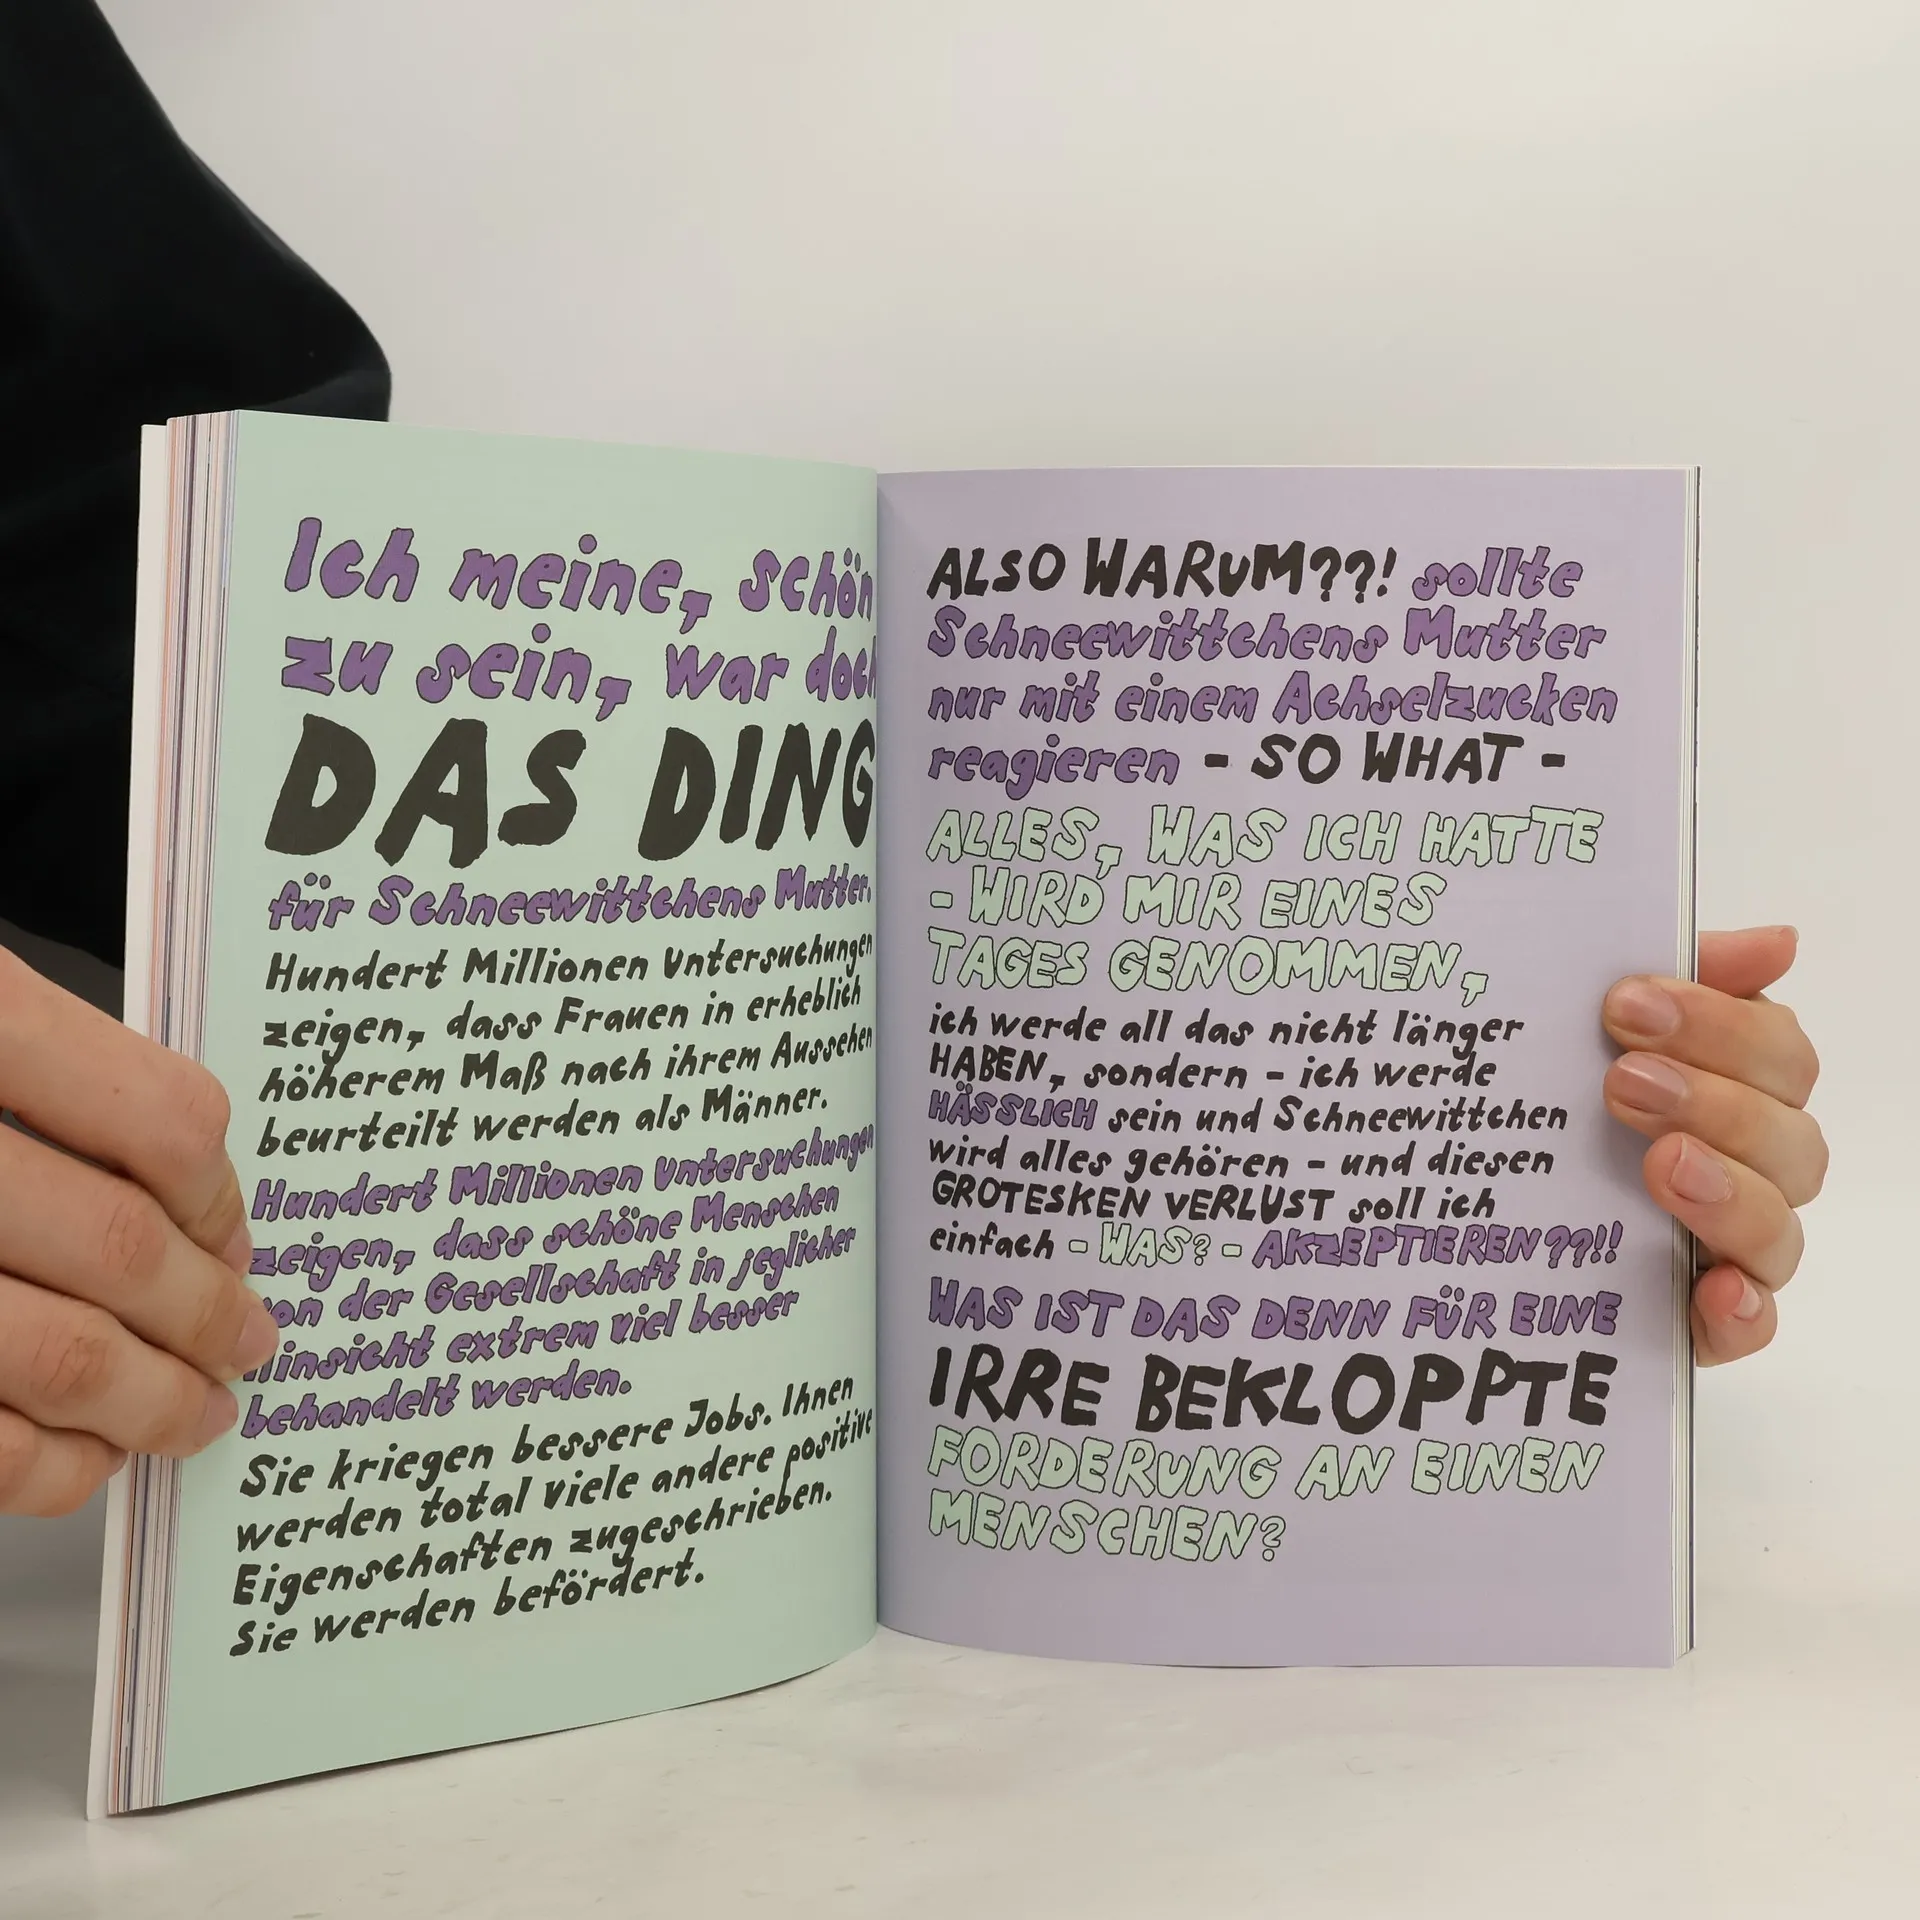 Ich meine, schön
zu sein, war doch
DAS DING
für Schneewittchens Mutter.
Hundert Millionen Untersuchungen
zeigen, dass Frauen in erheblich
höherem Maß nach ihrem Aussehen
beurteilt werden als Männer.
Hundert Millionen Untersuchungen
zeigen, dass schöne Menschen
von der Gesellschaft in jeglicher
Hinsicht extrem viel besser
behandelt werden.
Sie kriegen bessere Jobs. Ihnen
werden total viele andere positive
Eigenschaften zugeschrieben.
Sie werden befördert.
ALSO WARUM??! sollte
Schneewittchens Mutter
nur mit einem Achselzucken
reagieren - SO WHAT -
ALLES, WAS ICH HATTE
- WIRD MIR EINES
TAGES GENOMMEN,
ich werde all das nicht länger
HABEN, sondern - ich werde
HÄSSLICH sein und Schneewittchen
wird alles gehören - und diesen
GROTESKEN VERLUST soll ich
einfach - WAS? - AKZEPTIEREN??!!
WAS IST DAS DENN FÜR EINE
IRRE BEKLOPPTE
FORDERUNG AN EINEN
MENSCHEN?